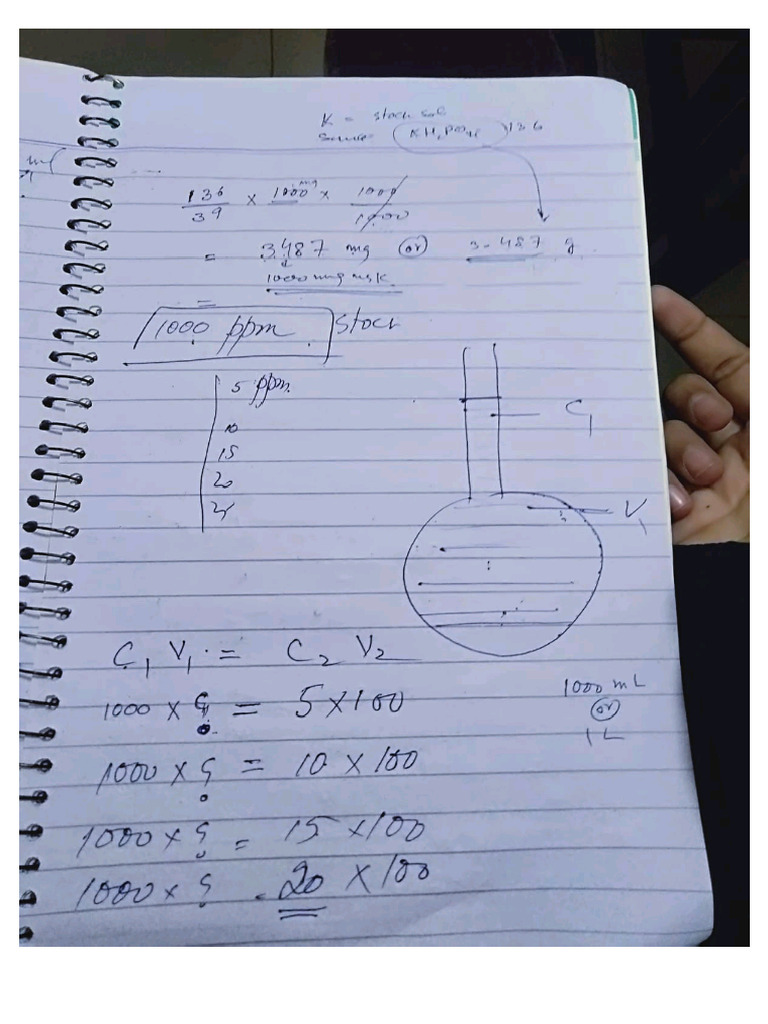 K = stock sol
Source (KH2PO4) 136
136/39 × 1000 mg × 1000/1000
= 3487 mg (or) 3.487 g
1000 mg
=
1000 ppm. stock
5 ppm.
10
15
20
25
C1
V1
C1 V1 = C2 V2
1000 × ? = 5×100
1000 mL
(or)
1 L
1000 × ? = 10 × 100
1000 × ? = 15 × 100
1000 × ? = 20 × 100